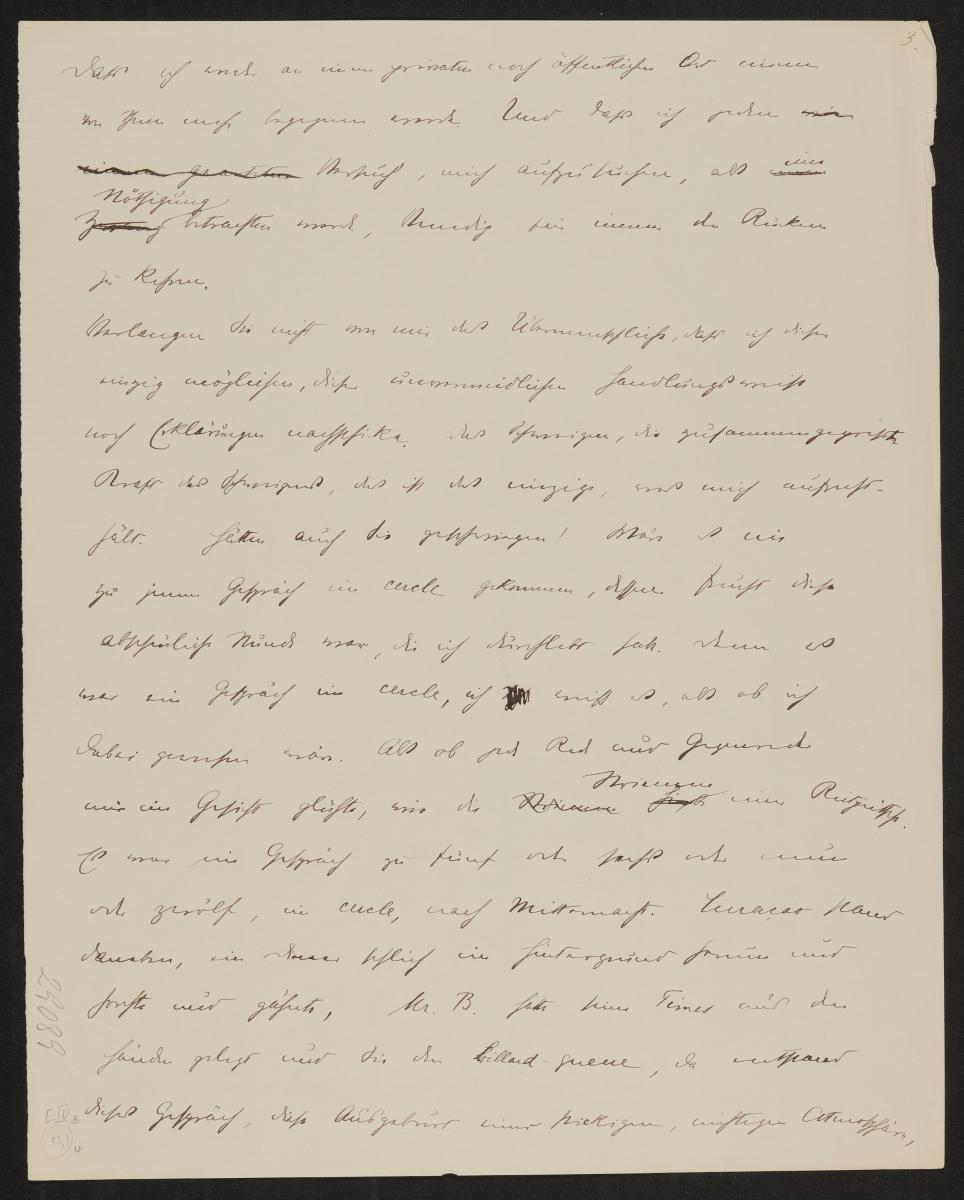 3.
Dass ich weder an einem privaten noch öffentlichen Ort einem
von Ihnen mehr begegnen werde. Und dass ich jeden
Versuch, mich aufzusuchen, als eine
Nöthigung
betrachten werde, Venedig für immer den Rücken
zu kehren.
Verlangen Sie nicht von mir das Übermenschliche, dass ich dieser
einzig möglichen, dieser unvermeidlichen Handlungsweise
noch Erklärungen nachschicke. Das Schweigen, die zusammengepresste
Kraft des Schweigens, das ist das einzige, was mich aufrecht-
hält. Hätten auch Sie geschwiegen! Wäre es nie
zu jenem Gespräch im cercle gekommen, dessen Frucht diese
abscheuliche Stunde war, die ich durchlebt habe. Denn es
war ein Gespräch im cercle, ich weiss es, als ob ich
dabei gewesen wäre. Als ob jede Rede und Gegenrede
mir im Gesicht glühte, wie die Striemen
Striemen einer Reitpeitsche.
Es war ein Gespräch zu fünf oder sechs oder neun
oder zwölf, im cercle, nach Mitternacht. Curaçao stand
daneben, ein Diener schlich im Hintergrund herum und
horchte und gähnte, Mr. B. hatte seine Times aus den
Händen gelegt und Sie den Billard-queue, da entstand
dieses Gespräch, diese Ausgeburt einer stickigen, nichtigen Atmosphäre,
29089
E IV B
3
4